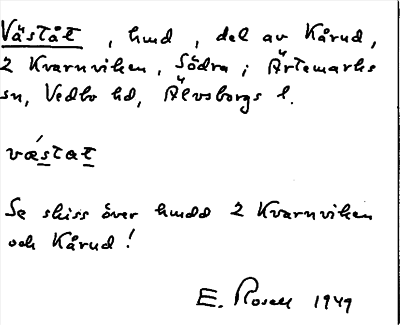 Väståt, hmd, del av Kårud,
2 Kvarnviken, Södra, i Ärtemarks
sn, Vedbo hd, Älvsborgs l.
vǽstat
Se skiss över hmdd 2 Kvarnviken
och Kårud!
E. Rosell 1949